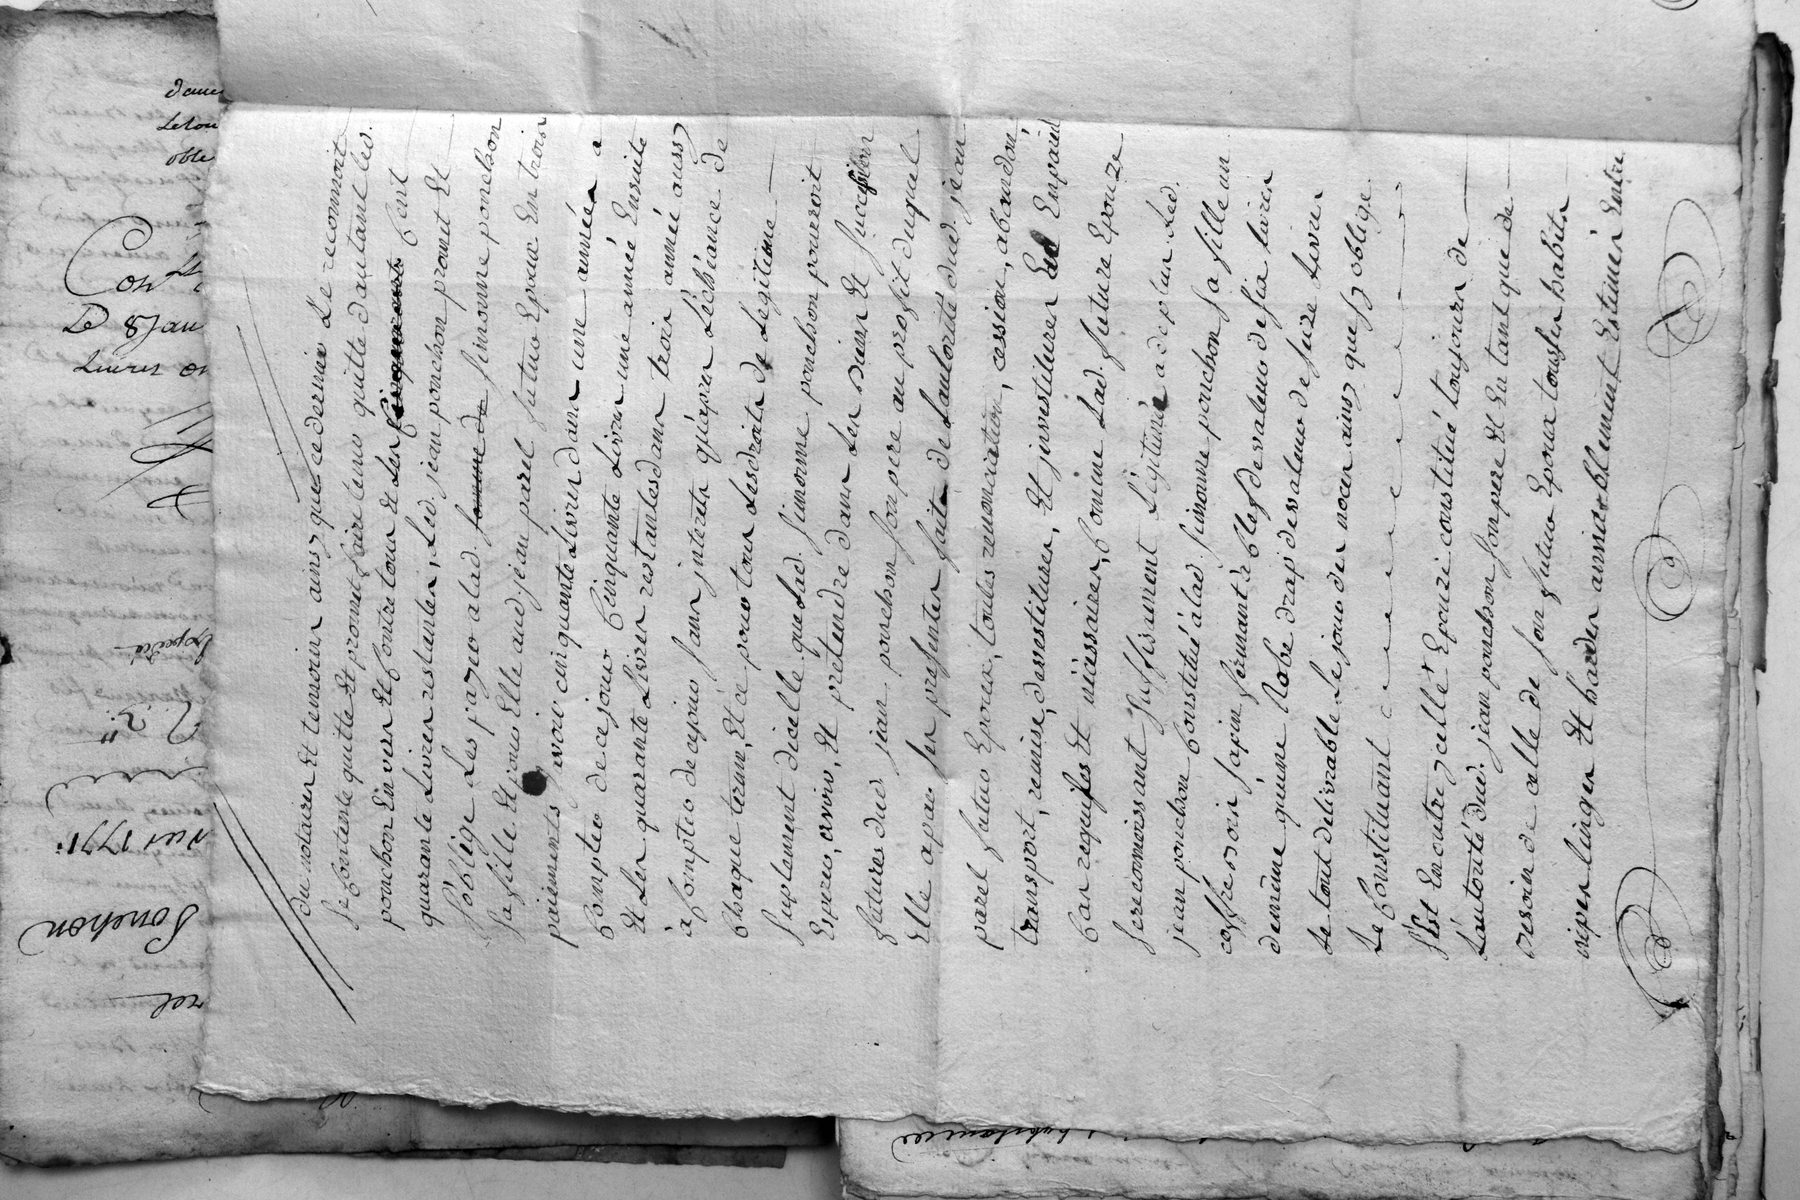 du notaires Et temoins ainsy que ce dernier Le reconnoit
Se Contente quitte Et promet faire tenir quitte d'autant led.
ponchon Envers Et Contre tous Et Les Cent
quarante Livres restantes, Led. jean ponchon promet Et
s'oblige Les payer a lad. somme de simonne ponchon
sa fille Et pour Elle aud. jean parel futur Epoux En trois
paiements sçavoir cinquante Livres dans une année a
Compter de ce jour Cinquante Livres une année Ensuite
Et Les quarante Livres restantes dans trois année aussy
à Compter de ce jour sans interets qu'apres L'échéance de
Chaque terme, Et ce pour tous Les droits de Legitime
suplement d'icelle que Lad. simonne ponchon pourroit
Esperer, avoir, Et prétendre dans Les biens Et succession
futures dud. jean ponchon son pere au profit duquel
Elle a par ses presentes faite de L'autorité dud. jean
parel futur Epoux, toutes renonciation, cession, abandon,
transport, remise, devestitures, Et investitures En pareil
Cas requises Et nécessaires, Comme Lad. future Epouze
se reconnoissant suffisament Légitimée de plus Led.
jean ponchon Constitué à lad. simonne ponchon sa fille un
coffre bois sapin fermant à clef de valeur de six livres
de même qu'une Robe drap de valeur de seize Livres
Le tout délivrable Le jour des noces ainsy que s'y oblige
Le Constituant
s'est En outre y celle Epouze constitué toujours de
L'autorité dud. jean ponchon son pere Et En tant que de
besoin de celle de son futur Epoux tous ses habits
linges Et hardes amiablement Estimés Entre
dans
obte
Le 8 jan
Livres
Expedié
1771
Ponchon
rel